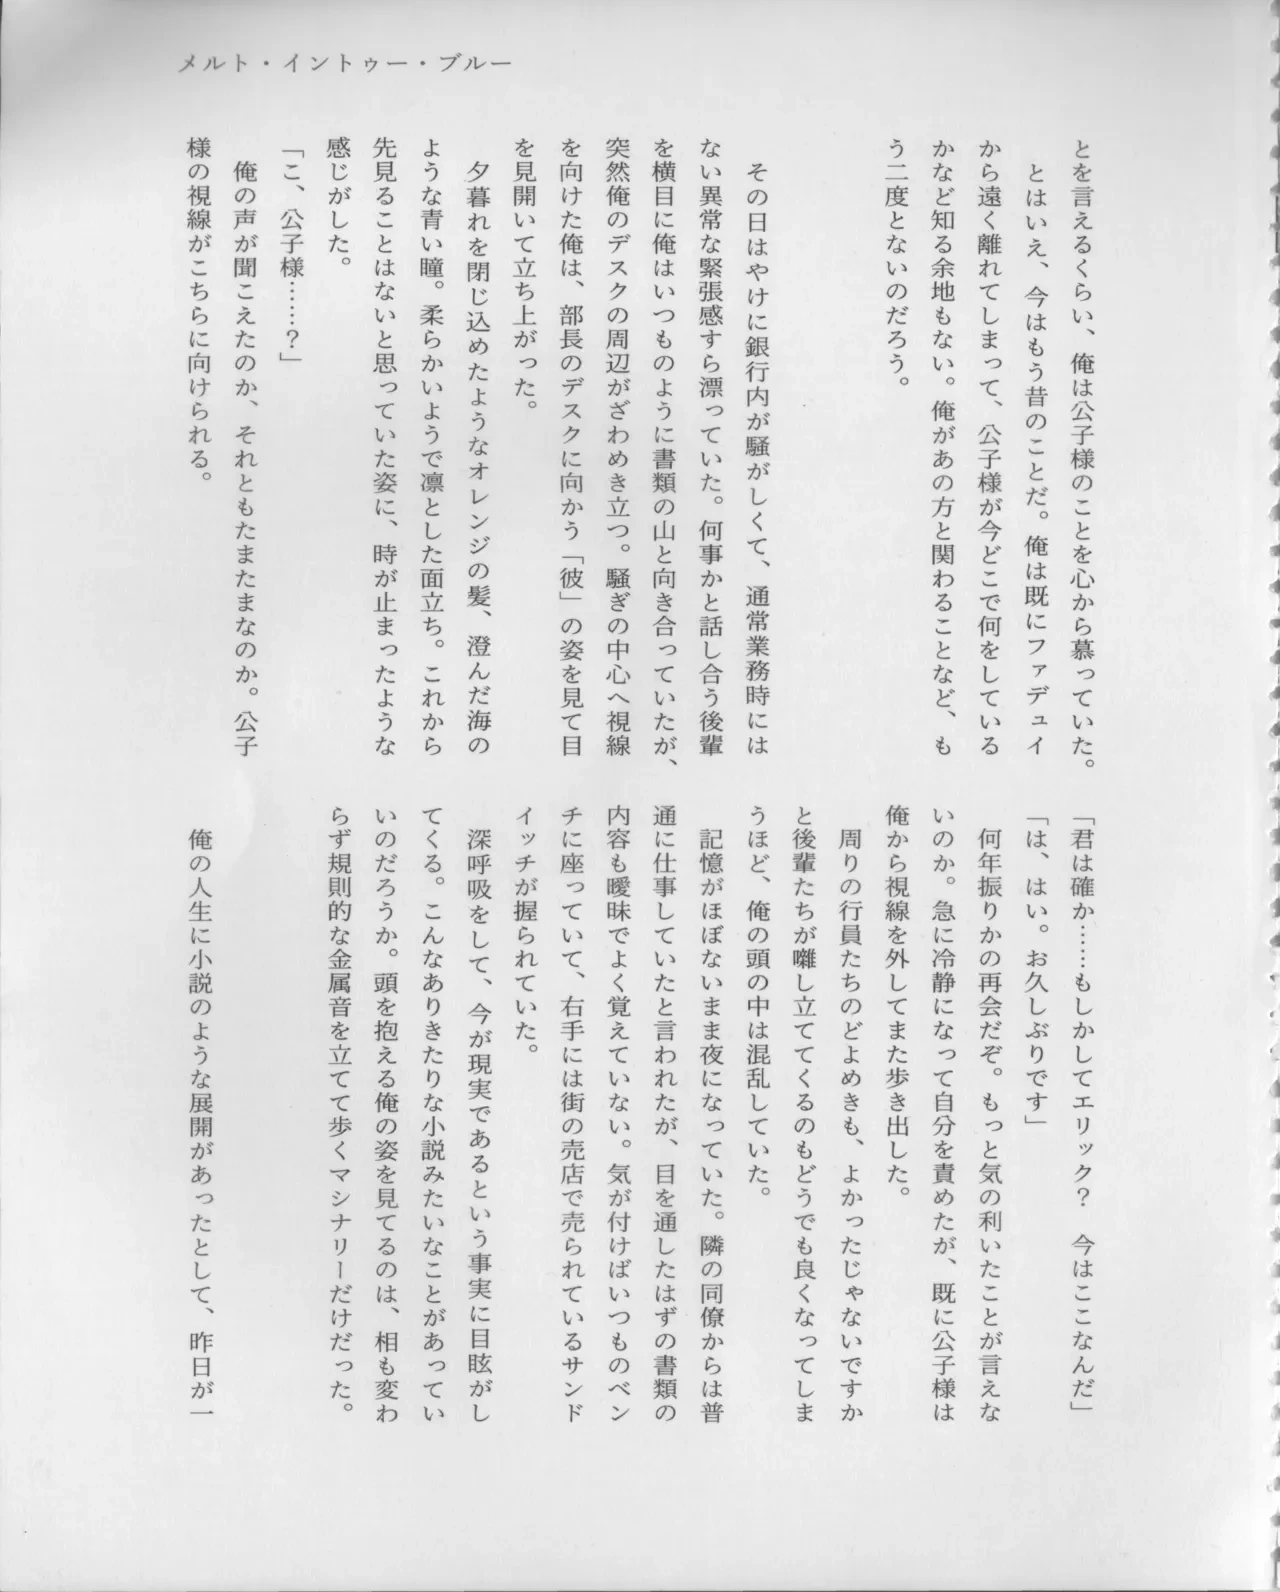 メルト・イントゥー・ブルー
とを言えるくらい、俺は公子様のことを心から慕っていた。
とはいえ、今はもう昔のことだ。俺は既にファデュイ
から遠く離れてしまって、公子様が今どこで何をしている
かなど知る余地もない。俺があの方と関わることなど、も
う二度とないのだろう。
その日はやけに銀行内が騒がしくて、通常業務時には
ない異常な緊張感すら漂っていた。何事かと話し合う後輩
を横目に俺はいつものように書類の山と向き合っていたが、
突然俺のデスクの周辺がざわめき立つ。騒ぎの中心へ視線
を向けた俺は、部長のデスクに向かう「彼」の姿を見て目
を見開いて立ち上がった。
夕暮れを閉じ込めたようなオレンジの髪、澄んだ海の
ような青い瞳。柔らかいようで凛とした面立ち。これから
先見ることはないと思っていた姿に、時が止まったような
感じがした。
「こ、公子様……？」
俺の声が聞こえたのか、それともたまたまなのか。公子
様の視線がこちらに向けられる。
「君は確か……もしかしてエリック？　今はここなんだ」
「は、はい。お久しぶりです」
何年振りかの再会だぞ。もっと気の利いたことが言えな
いのか。急に冷静になって自分を責めたが、既に公子様は
俺から視線を外してまた歩き出した。
周りの行員たちのどよめきも、よかったじゃないですか
と後輩たちが囃し立ててくるのもどうでも良くなってしま
うほど、俺の頭の中は混乱していた。
記憶がほぼないまま夜になっていた。隣の同僚からは普
通に仕事していたと言われたが、目を通したはずの書類の
内容も曖昧でよく覚えていない。気が付けばいつものベン
チに座っていて、右手には街の売店で売られているサンド
イッチが握られていた。
深呼吸をして、今が現実であるという事実に目眩がし
てくる。こんなありきたりな小説みたいなことがあってい
いのだろうか。頭を抱える俺の姿を見てるのは、相も変わ
らず規則的な金属音を立てて歩くマシナリーだけだった。
俺の人生に小説のような展開があったとして、昨日が一